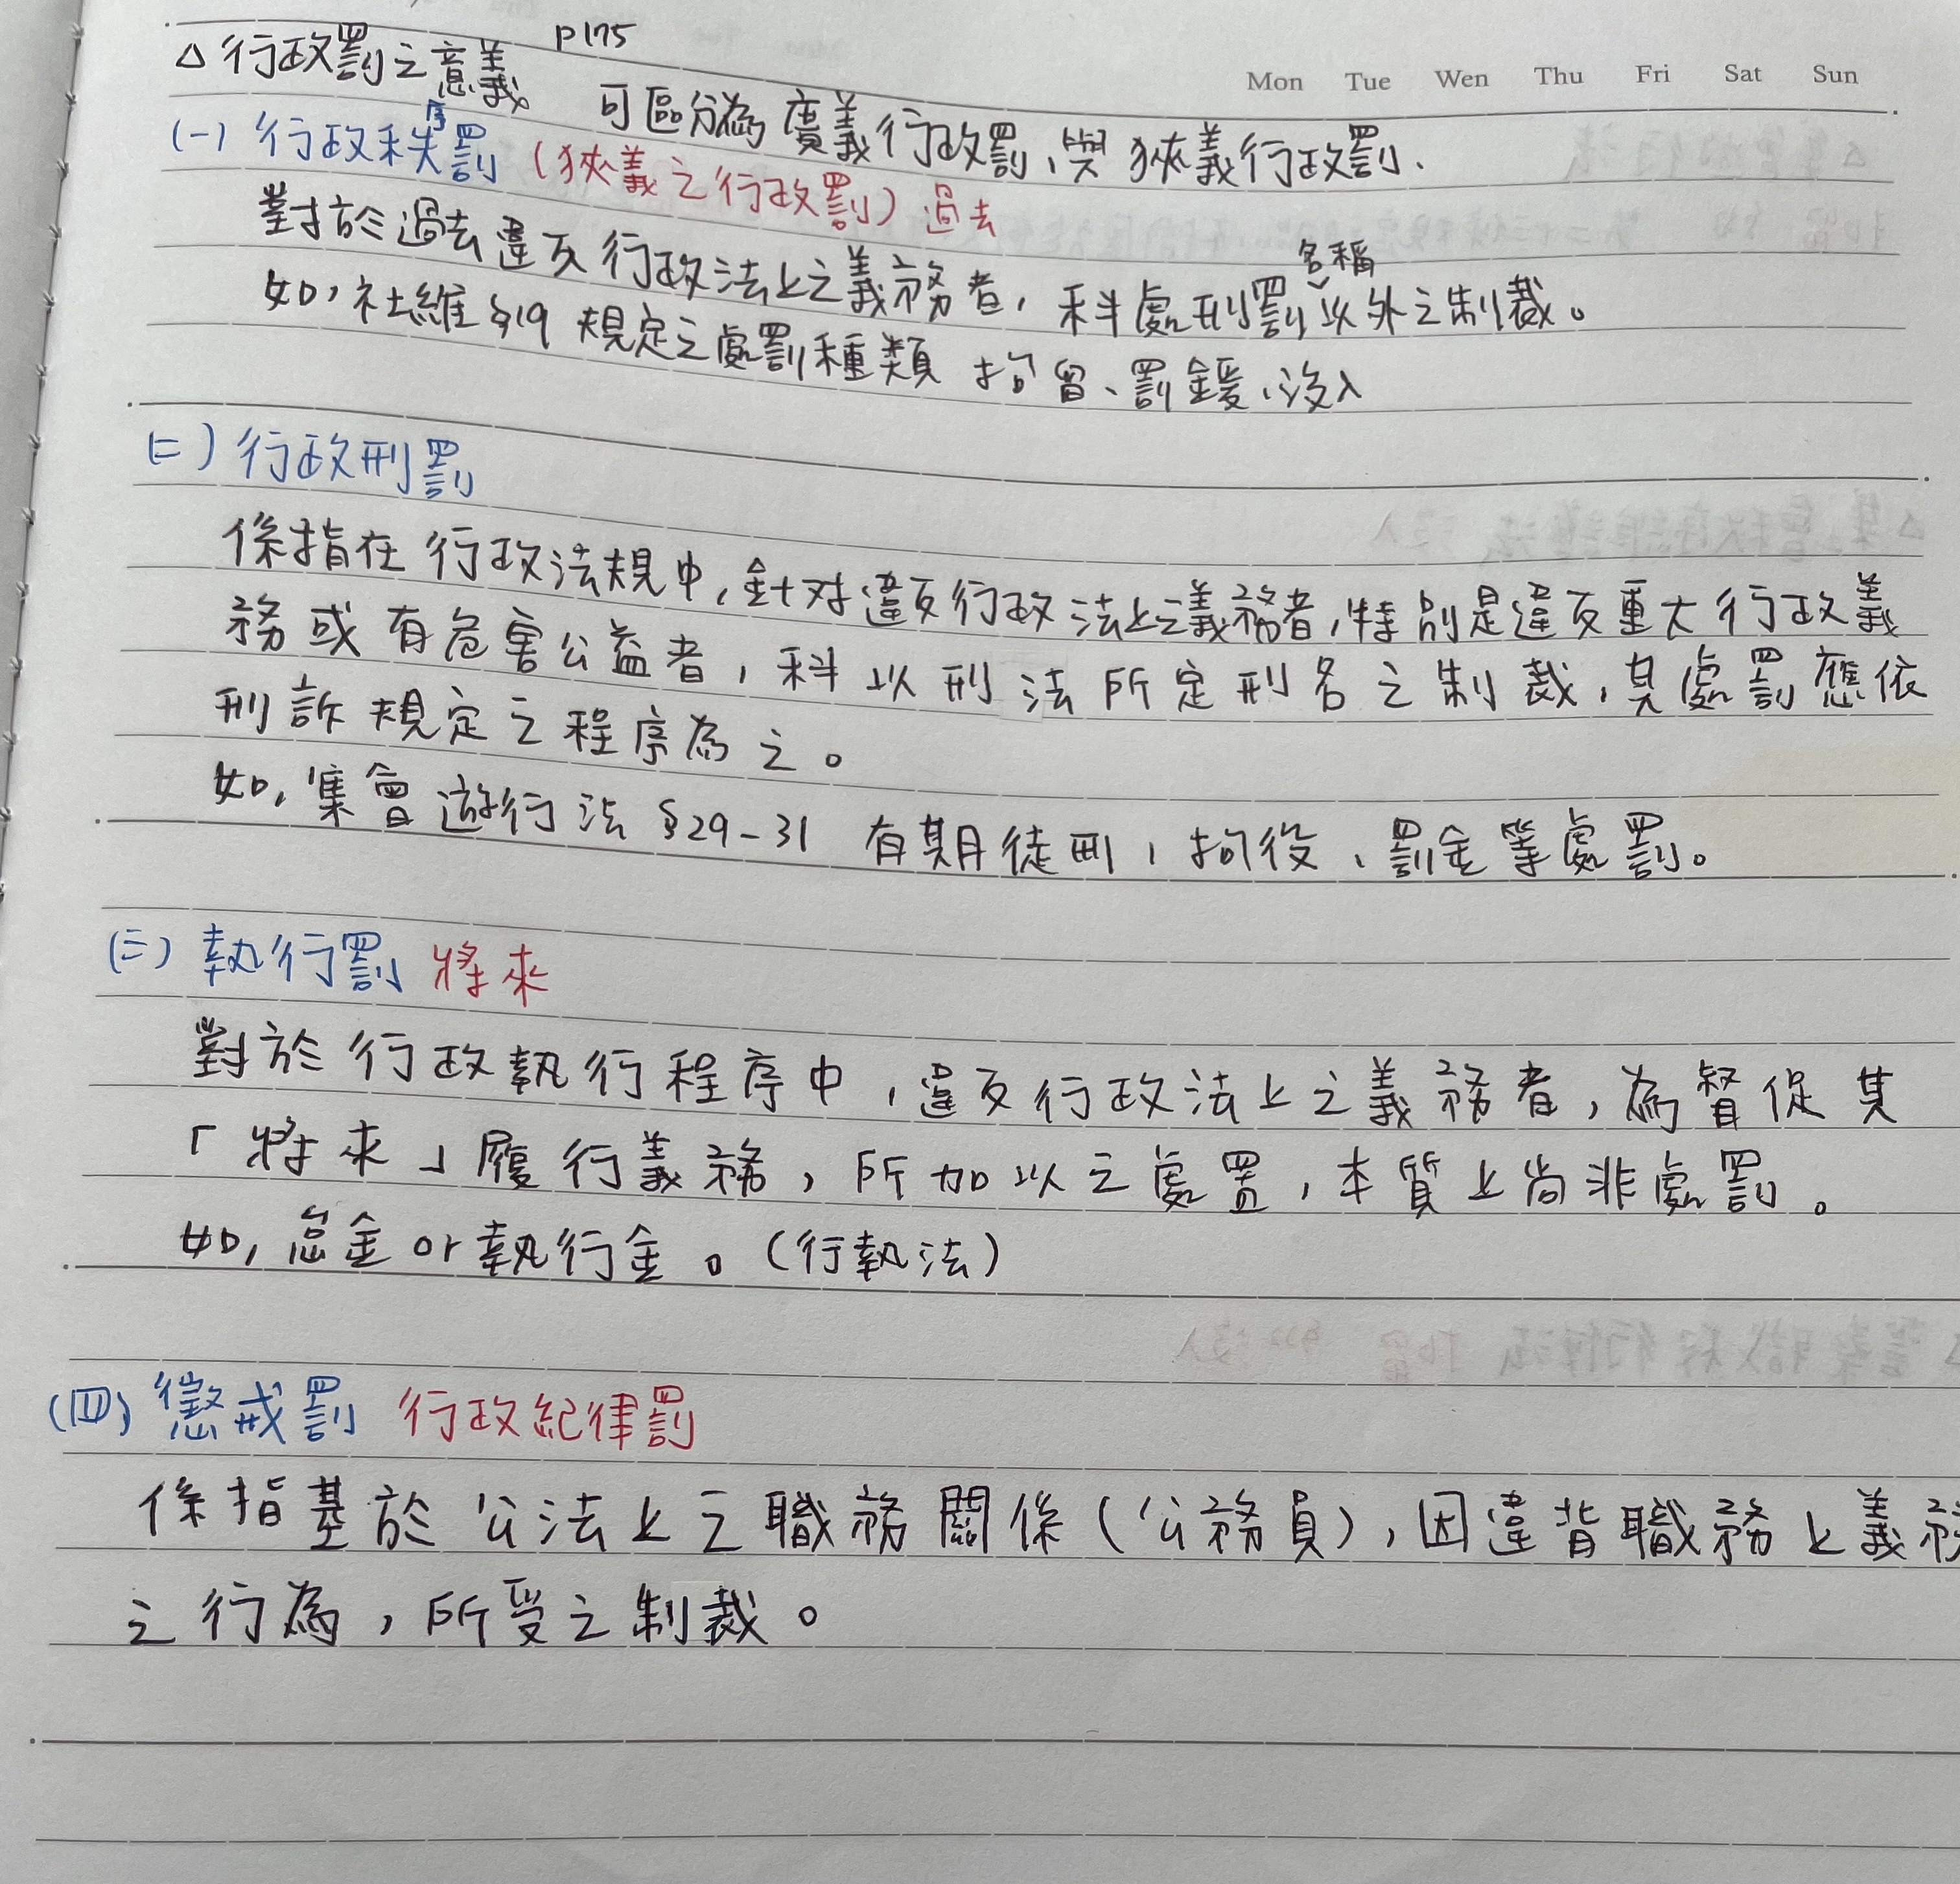 P175
△行政罰之意義。
可區分為廣義行政罰、與狹義行政罰.
Mon Tue Wen Thu Fri Sat Sun
(一)行政秩序罰(狹義之行政罰)過去
對於過去違反行政法上之義務者,科處刑罰名稱以外之制裁。
如,社維§19 規定之處罰種類 拘留、罰鍰、沒入
(二)行政刑罰
係指在行政法規中,針对違反行政法上之義務者,特別是違反重大行政義
務或有危害公益者,科以刑法所定刑名之制裁,其處罰應依
刑訴規定之程序為之。
如,集會遊行法§29-31 有期徒刑,拘役、罰金等處罰。
(三)執行罰 將來
對於行政執行程序中,違反行政法上之義務者,為督促其
「將來」履行義務,所加以之處置,本質上尚非處罰。
如,怠金or執行金。(行執法)
(四)懲戒罰 行政紀律罰
係指基於公法上之職務關係(公務員),因違背職務上義務
之行為,所受之制裁。